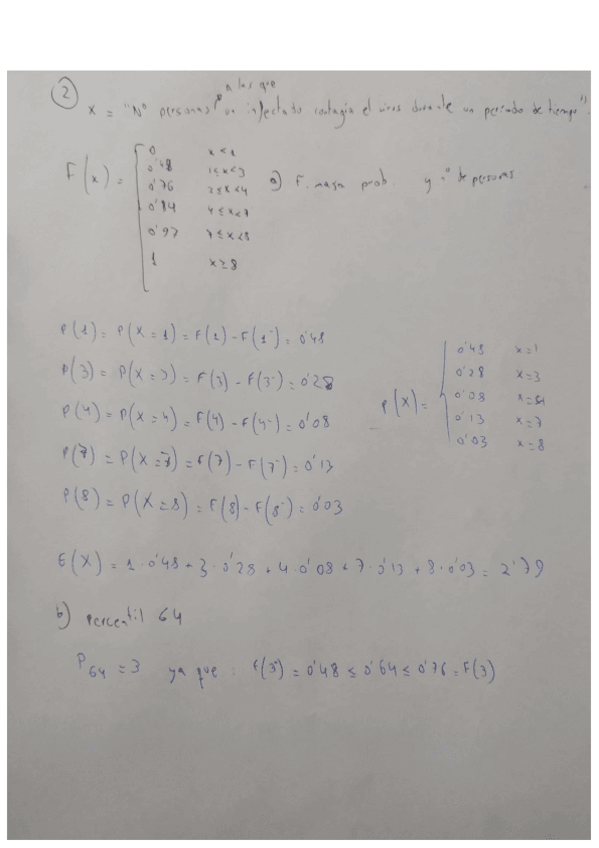 ②
a las que
X = "Nº personas un infectado contagia el virus durante un periodo de tiempo".
F(x) =
0 x<1
0'48 1≤x<3
0'76 3≤x<4
0'84 4≤x<7
0'97 7≤x<8
1 x≥8
a) F. masa prob y nº de personas
P(1) = P(X=1) = F(1) - F(1⁻) = 0'48
P(3) = P(X=3) = F(3) - F(3⁻) = 0'28
P(4) = P(X=4) = F(4) - F(4⁻) = 0'08
P(7) = P(X=7) = F(7) - F(7⁻) = 0'13
P(8) = P(X=8) = F(8) - F(8⁻) = 0'03
P(X) =
0'48 x=1
0'28 x=3
0'08 x=4
0'13 x=7
0'03 x=8
E(X) = 1·0'48 + 3·0'28 + 4·0'08 + 7·0'13 + 8·0'03 = 2'79
b) percentil 64
P₆₄ = 3 ya que: F(3⁻) = 0'48 ≤ 0'64 ≤ 0'76 = F(3)